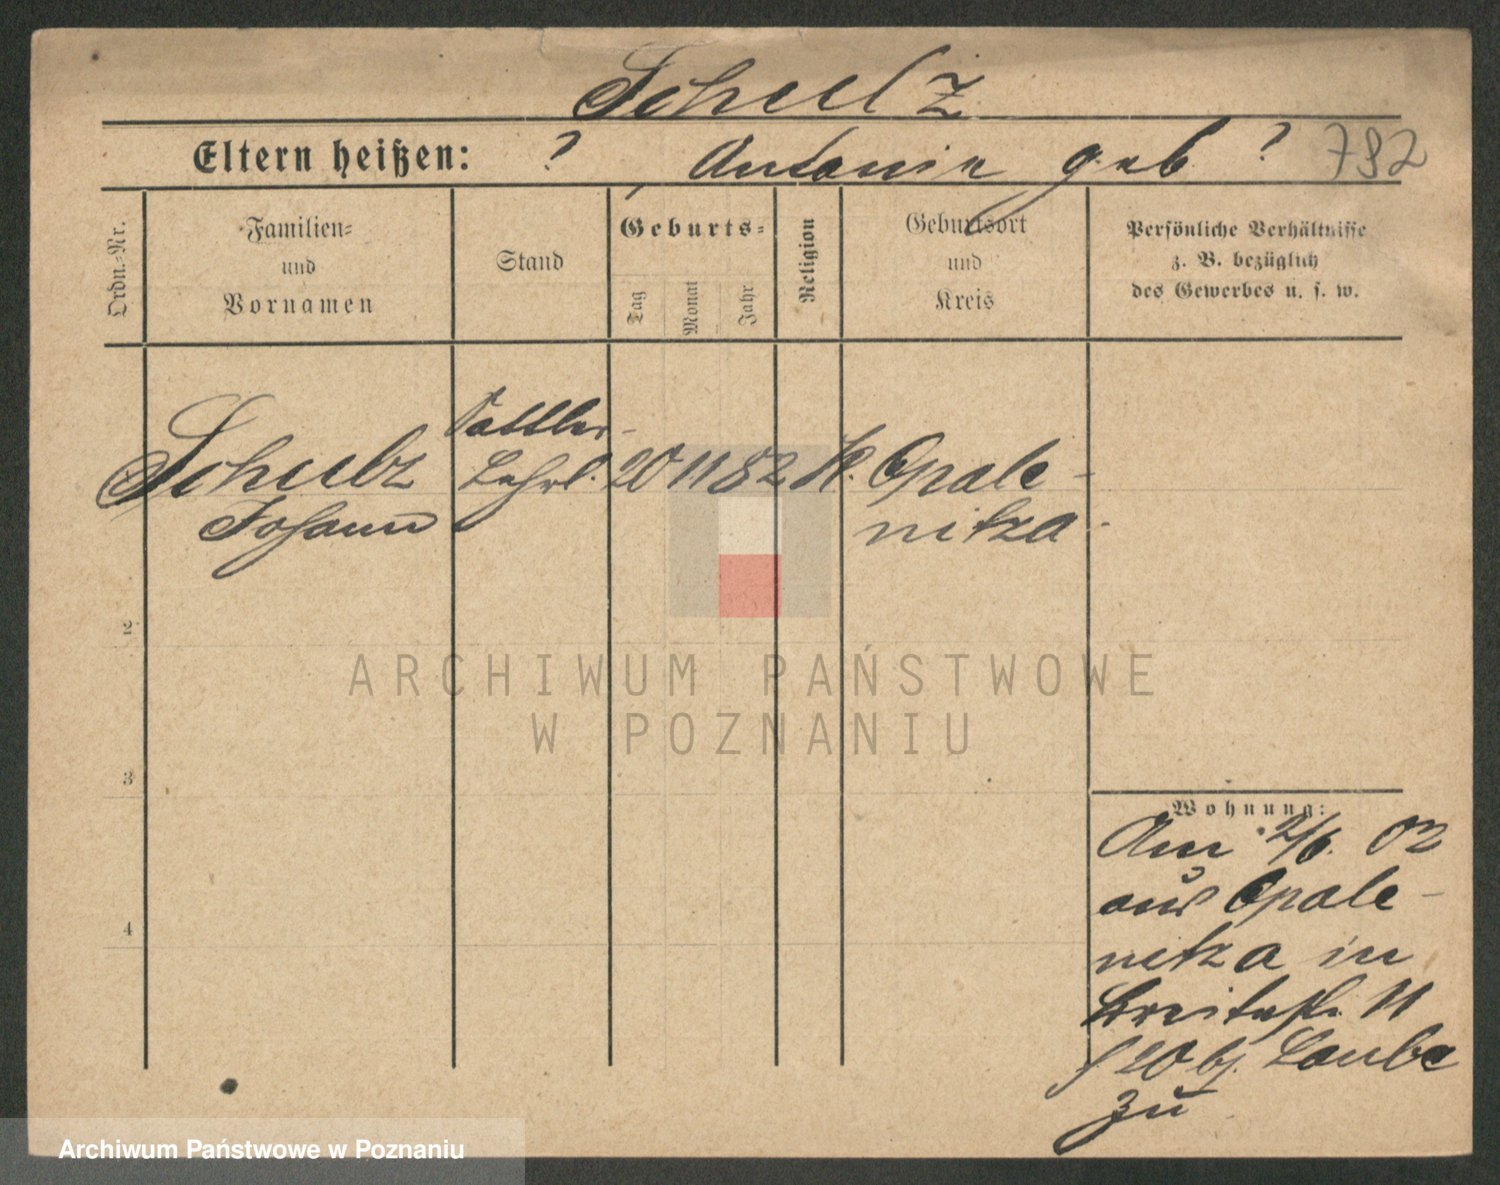 Schulz
Eltern heißen: ? Antonie geb ? 792
Ordn.-Nr.
Familien-
und
Vornamen
Stand
Geburts-
Tag
Monat
Jahr
Religion
Geburtsort
und
Kreis
Persönliche Verhältnisse
z. B. bezüglich
des Gewerbes u. s. w.
Sattler-
Schulz Lehrl. 20 11 82 K. Opale-
Johann nitza.
2
3
4
ARCHIWUM PAŃSTWOWE
W POZNANIU
Wohnung:
Am 2/6. 02
aus Opale-
nitza in
Breitestr. 11
20 bj. Laube
zu
Archiwum Państwowe w Poznaniu